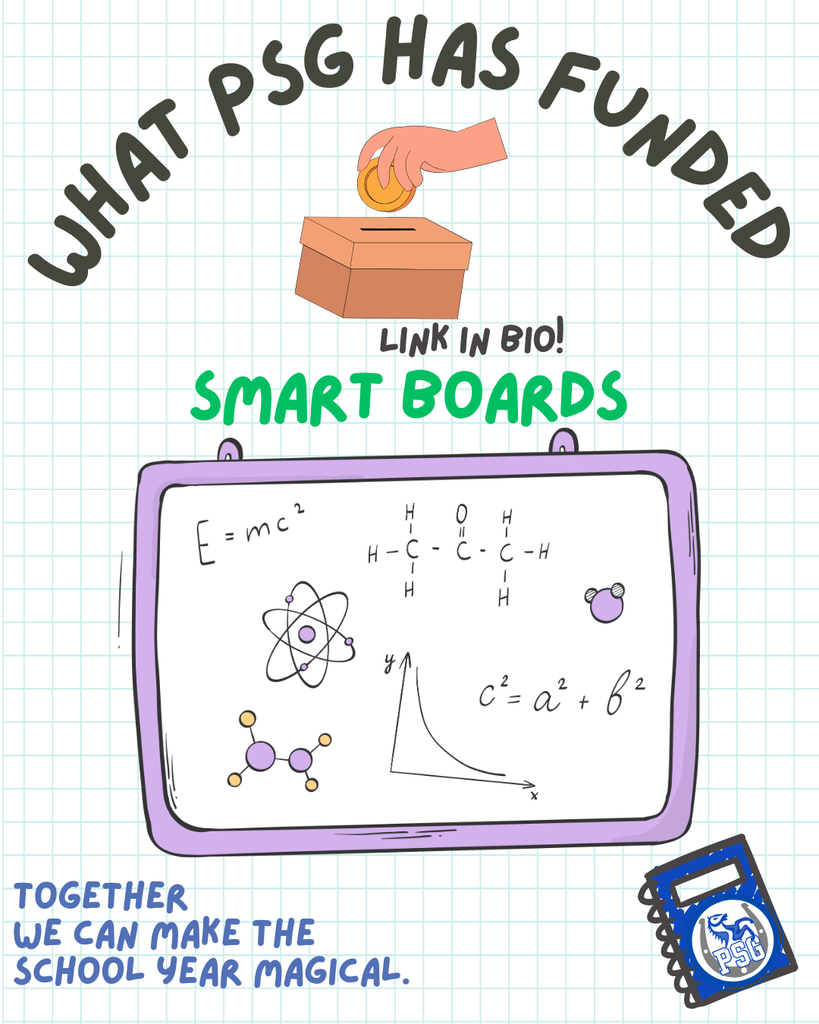 WHAT PSG HAS FUNDED
LINK IN BIO!
SMART BOARDS
E = mc²
H O H
H – C - C - C – H
H H
y
x
c² = a² + b²
TOGETHER
WE CAN MAKE THE
SCHOOL YEAR MAGICAL.
PSG